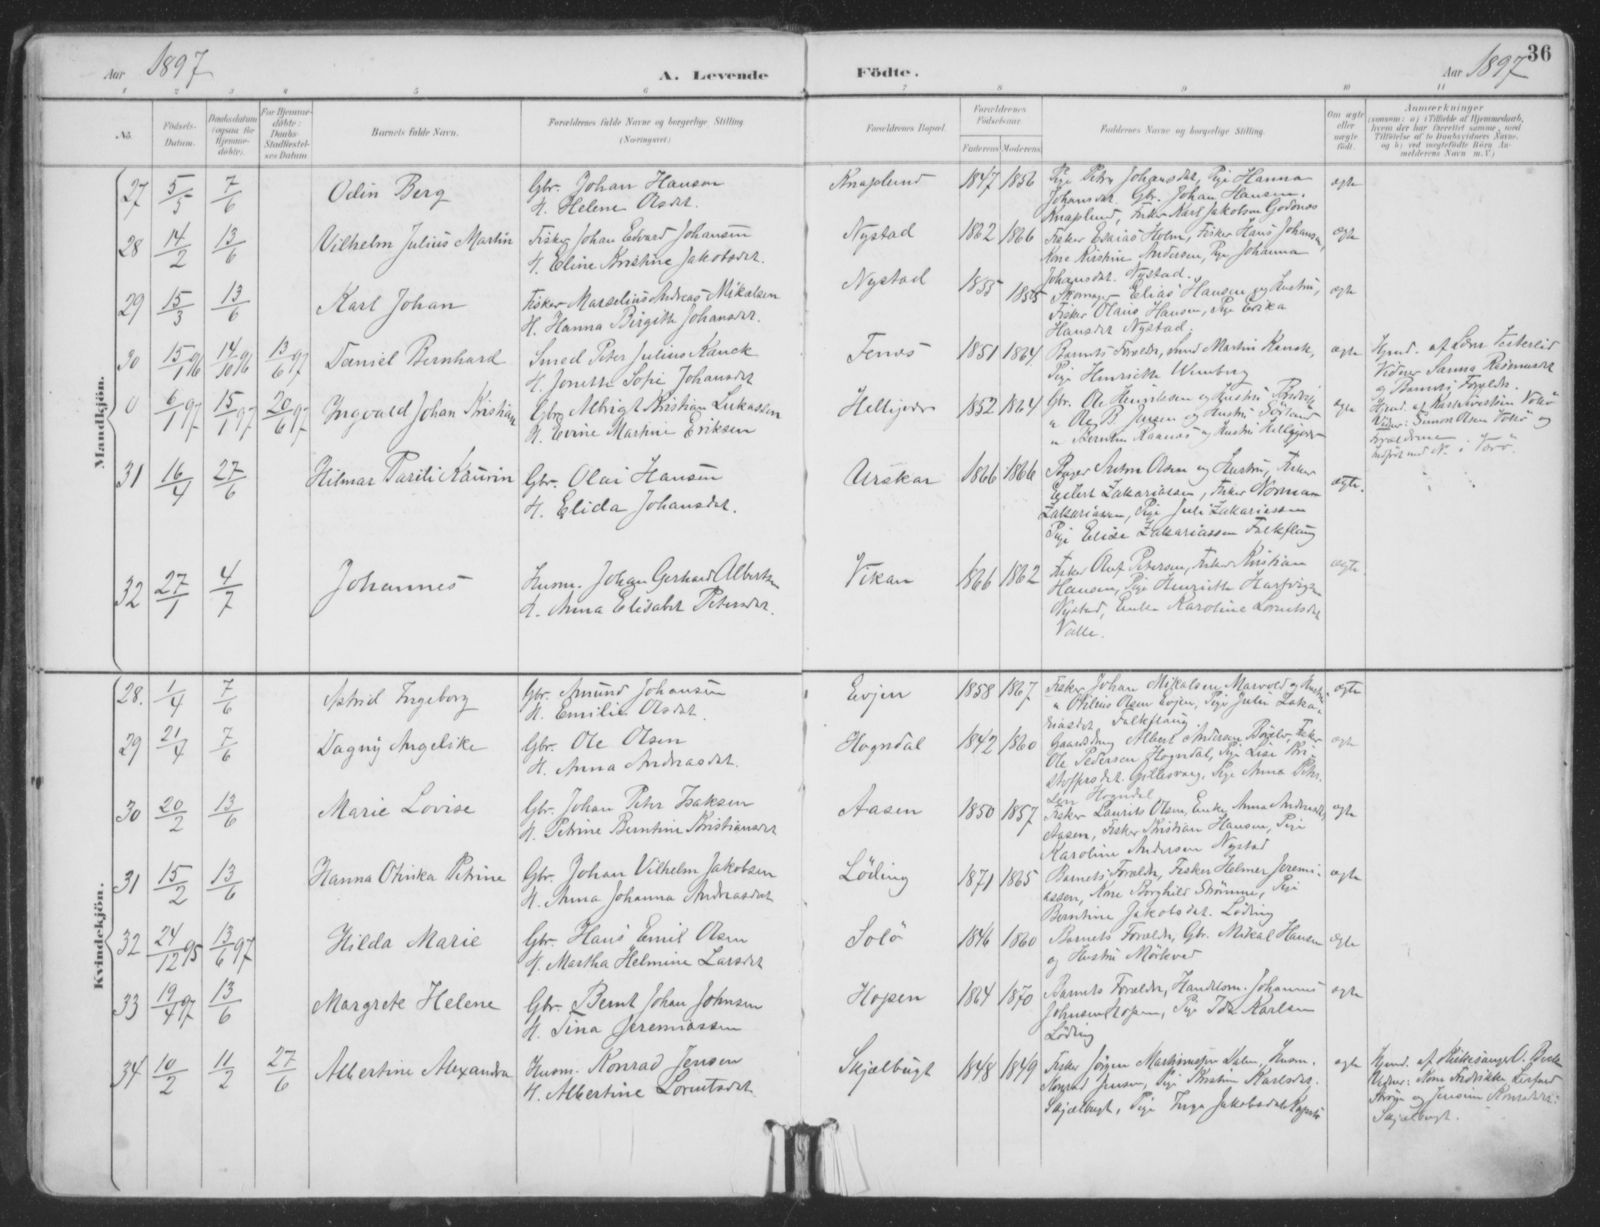 Aar 1897
A. Levende
Födte.
Aar 1897
36
1 2 3 4 5 6 7 8 9 10 11
No.
Födsels-Datum.
Daabsdatum (ogsaa for Hjemmedöbte).
For Hjemmedöbte: Daabs-Stadfæstelses Datum
Barnets fulde Navn.
Forældrenes fulde Navne og borgerlige Stilling (Næringsvei)
Forældrenes Bopæl.
Forældrenes Födselsaar.
Faderens Moderens
Faddernes Navne og borgerlige Stilling.
Om ægte eller uægte födt.
Anmærkninger
Mandkjön.
27 5/5 7/6 Odin Berg
Gbr. Johan Hansen
H. Helene Olsdat.
Knaplund 1847 1856
Pige Petra Johansdat, Pige Hanna
Johansdat. Gbr. Johan Hansen.
Knaplund, Fisker Karl Jakobsen Godönes
ægte
28 14/2 13/6 Vilhelm Julius Martin
Fisker Johan Edvard Johansen
H. Eline Kristine Jakobsdat.
Nystad 1862 1866
Fisker Esaias Holm, Fisker Hans Johansen,
Kone Kirstine Andersen, Pige Johanna
Johansdat. Nystad.
ægte
29 15/3 13/6 Karl Johan
Fisker Marselius Andreas Mikalsen
H. Hanna Birgith Johansdat.
Nystad 1855 1855
Skomager Elias Hansen og Hustru,
Fisker Olaus Hansen, Pige Erika
Hansdat Nystad.
ægte
30 15/1 96 14/10 96 13/6 97 Daniel Bernhard
Smed Peter Julius Kanck
H. Jonette Sofie Johansdat
Fenes 1851 1864
Barnets Forældre, Smed Martin Kanck,
Pige Henriette Wenberg
ægte
Hjmd. af Lærer Festerlid
Vidner Sanna Rasmusdat
og Barnets Forældre.
0 6/1 97 15/1 97 20/6 97 Ingvald Johan Kristian
Gbr. Albrigt Kristian Lukassen
H. Evine Martine Eriksen
1852 1864
Gbr. Ole Henriksen og Hustru
ægte
Simon Olsen
31 16/4 27/6 Hilmar Parili Kaurin
Gbr. Olai Hansen
H. Elida Johansdat.
Urskar 1866 1866
Anton Olsen og Hustru, Fisker
Zakariassen, Fisker Norman
Zakariassen, Pige Julie Zakariassen
Pige Elise Zakariassen Falkflaug
ægte.
32 27/1 4/7 Johannes
Husm. Johan Gerhard Albertsen
H. Anna Elisabet Petersdat.
Vikan 1866 1862
Fisker Oluf Petersen, Fisker Kristian
Hansen, Pige Henriette Hartvigsen
Nystad, Enke Karoline Lorntsdat
Valle.
ægte
Kvindekjön.
28. 1/4 7/6 Astrid Ingeborg
Gbr. Amund Johansen
H. Emilie Olsdat.
Evjen 1858 1867
Fisker Johan Mikalsen Marvold og Hustru
Otilius Olsen Evjen, Pige Julie Zaka-
riasdat, Falkflaug
ægte
29 21/4 7/6 Dagny Angelike
Gbr. Ole Olsen
H. Anna Andreasdat.
Hogndal 1842 1860
Gaardbrug Albert Andersen Börelv, Fisker
Ole Pedersen Hogndal, Pige Lise Kri-
stoffersdat. Gillesvaag, Pige Anna Peter-
sen Hogndal
ægte
30 20/2 13/6 Marie Lovise
Gbr. Johan Peter Isaksen
H. Petrine Berntine Kristiansdat
Aasen 1850 1857
Fisker Laurits Olsen, Enke Anna Andreasdat,
Aasen, Fisker Kristian Hansen, Pige
Karoline Andersen Nystad
ægte
31 15/2 13/6 Hanna Otinka Petrine
Gbr. Johan Vilhelm Jakobsen
H. Anna Johanna Andreasdat
Löding 1871 1865
Barnets Forældre, Fisker Helmer Jeremi-
assen, Kone Borghild Strömme, Pige
Berntine Jakobsdat. Löding
ægte
32 24/12 95 13/6 97 Hilda Marie
Gbr. Hans Emil Olsen
H. Martha Helmine Larsdat
Solö 1846 1860
Barnets Forældre, Gbr. Mikal Hansen
og Hustru Mörkved
ægte
33 19/4 97 13/6 Margrete Helene
Gbr. Bernt Johan Johnsen
H. Tina Jeremiassen
Hopen 1864 1870
Barnets Forældre, Handelsm. Johannes
Johnsen Hopen, Pige Ida Karlsen
Löding
ægte
34 10/2 11/2 27/6 Albertine Alexandra
Husm. Konrad Jensen
H. Albertine Lorntsdat
Skjælbugt 1848 1849
Fisker Jörgen Martinussen Valen, Husm.
Konrad Jensen, Pige Kristine Karlsdat.
Skjælbugt, Pige Inga Jakobsdat
ægte
Hjmd. af Kirkesanger
Vidner: Kone Fredrikke
og Jensine Konradsdat.
Skjælbugt.